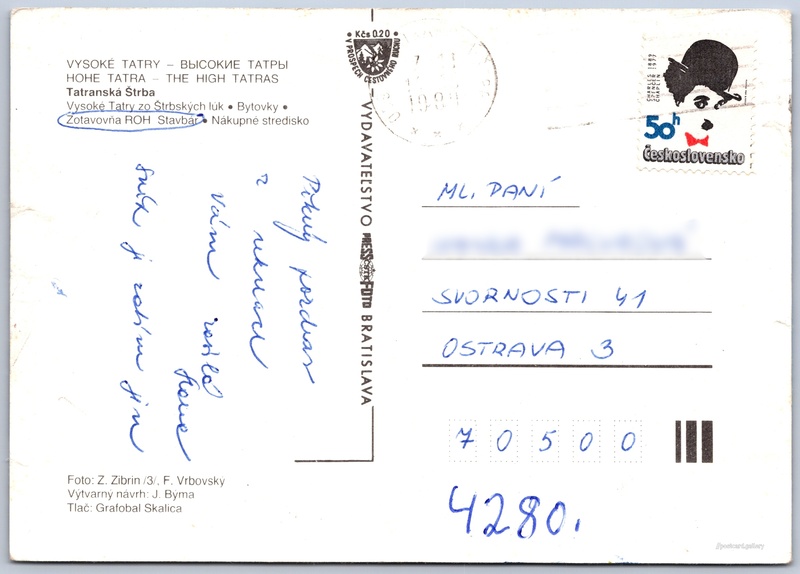 VYSOKÉ TATRY – ВЫСОКИЕ ТАТРЫ
HOHE TATRA – THE HIGH TATRAS
Tatranská Štrba
Vysoké Tatry zo Štrbských lúk • Bytovky •
Zotavovňa ROH Stavbár • Nákupné stredisko
Pěkný pozdrav
z rekreace
Vám posílá
Hana
Sník je zatím jen
Foto: Z. Zibrin /3/, F. Vrbovsky
Výtvarný návrh: J. Byma
Tlač: Grafobal Skalica
• Kčs 0.20 •
V PROSPECH CESTOVNÉHO RUCHU
VYDAVATEĽSTVO PRESSFOTO BRATISLAVA
CHARLES SPENCER CHAPLIN
1889
1977
50h
Československo
ML. PANÍ
SVORNOSTI 41
OSTRAVA 3
70500
4280.
//postcard.gallery